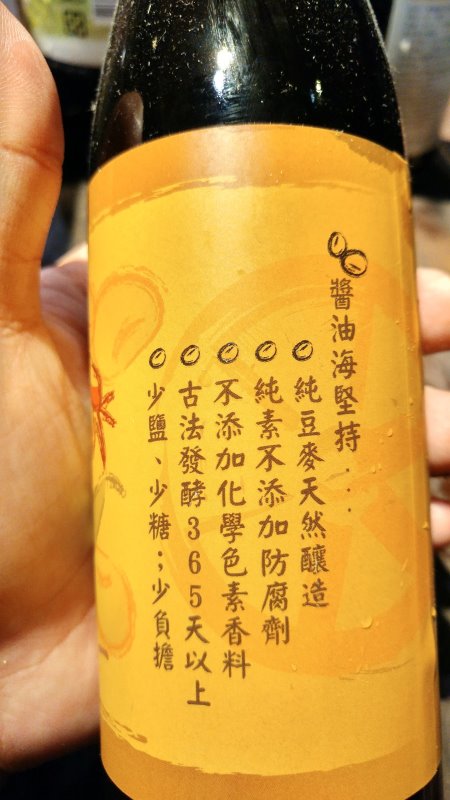 醬油海堅持...
純豆麥天然釀造
純素不添加防腐劑
不添加化學色素香料
古法發酵365天以上
少鹽、少糖；少負擔